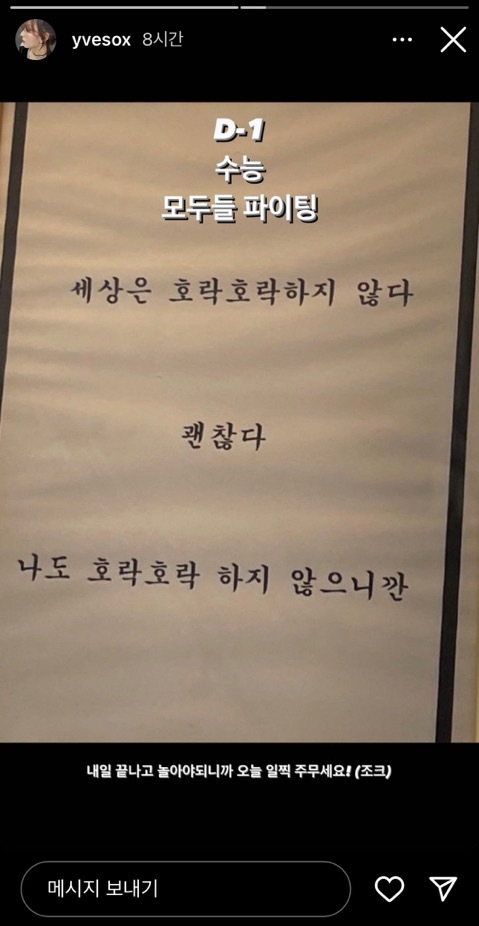 yvesox 8시간
D-1
수능
모두들 파이팅
세상은 호락호락하지 않다
괜찮다
나도 호락호락 하지 않으니깐
내일 끝나고 놀아야되니까 오늘 일찍 주무세요! (조크)
메시지 보내기